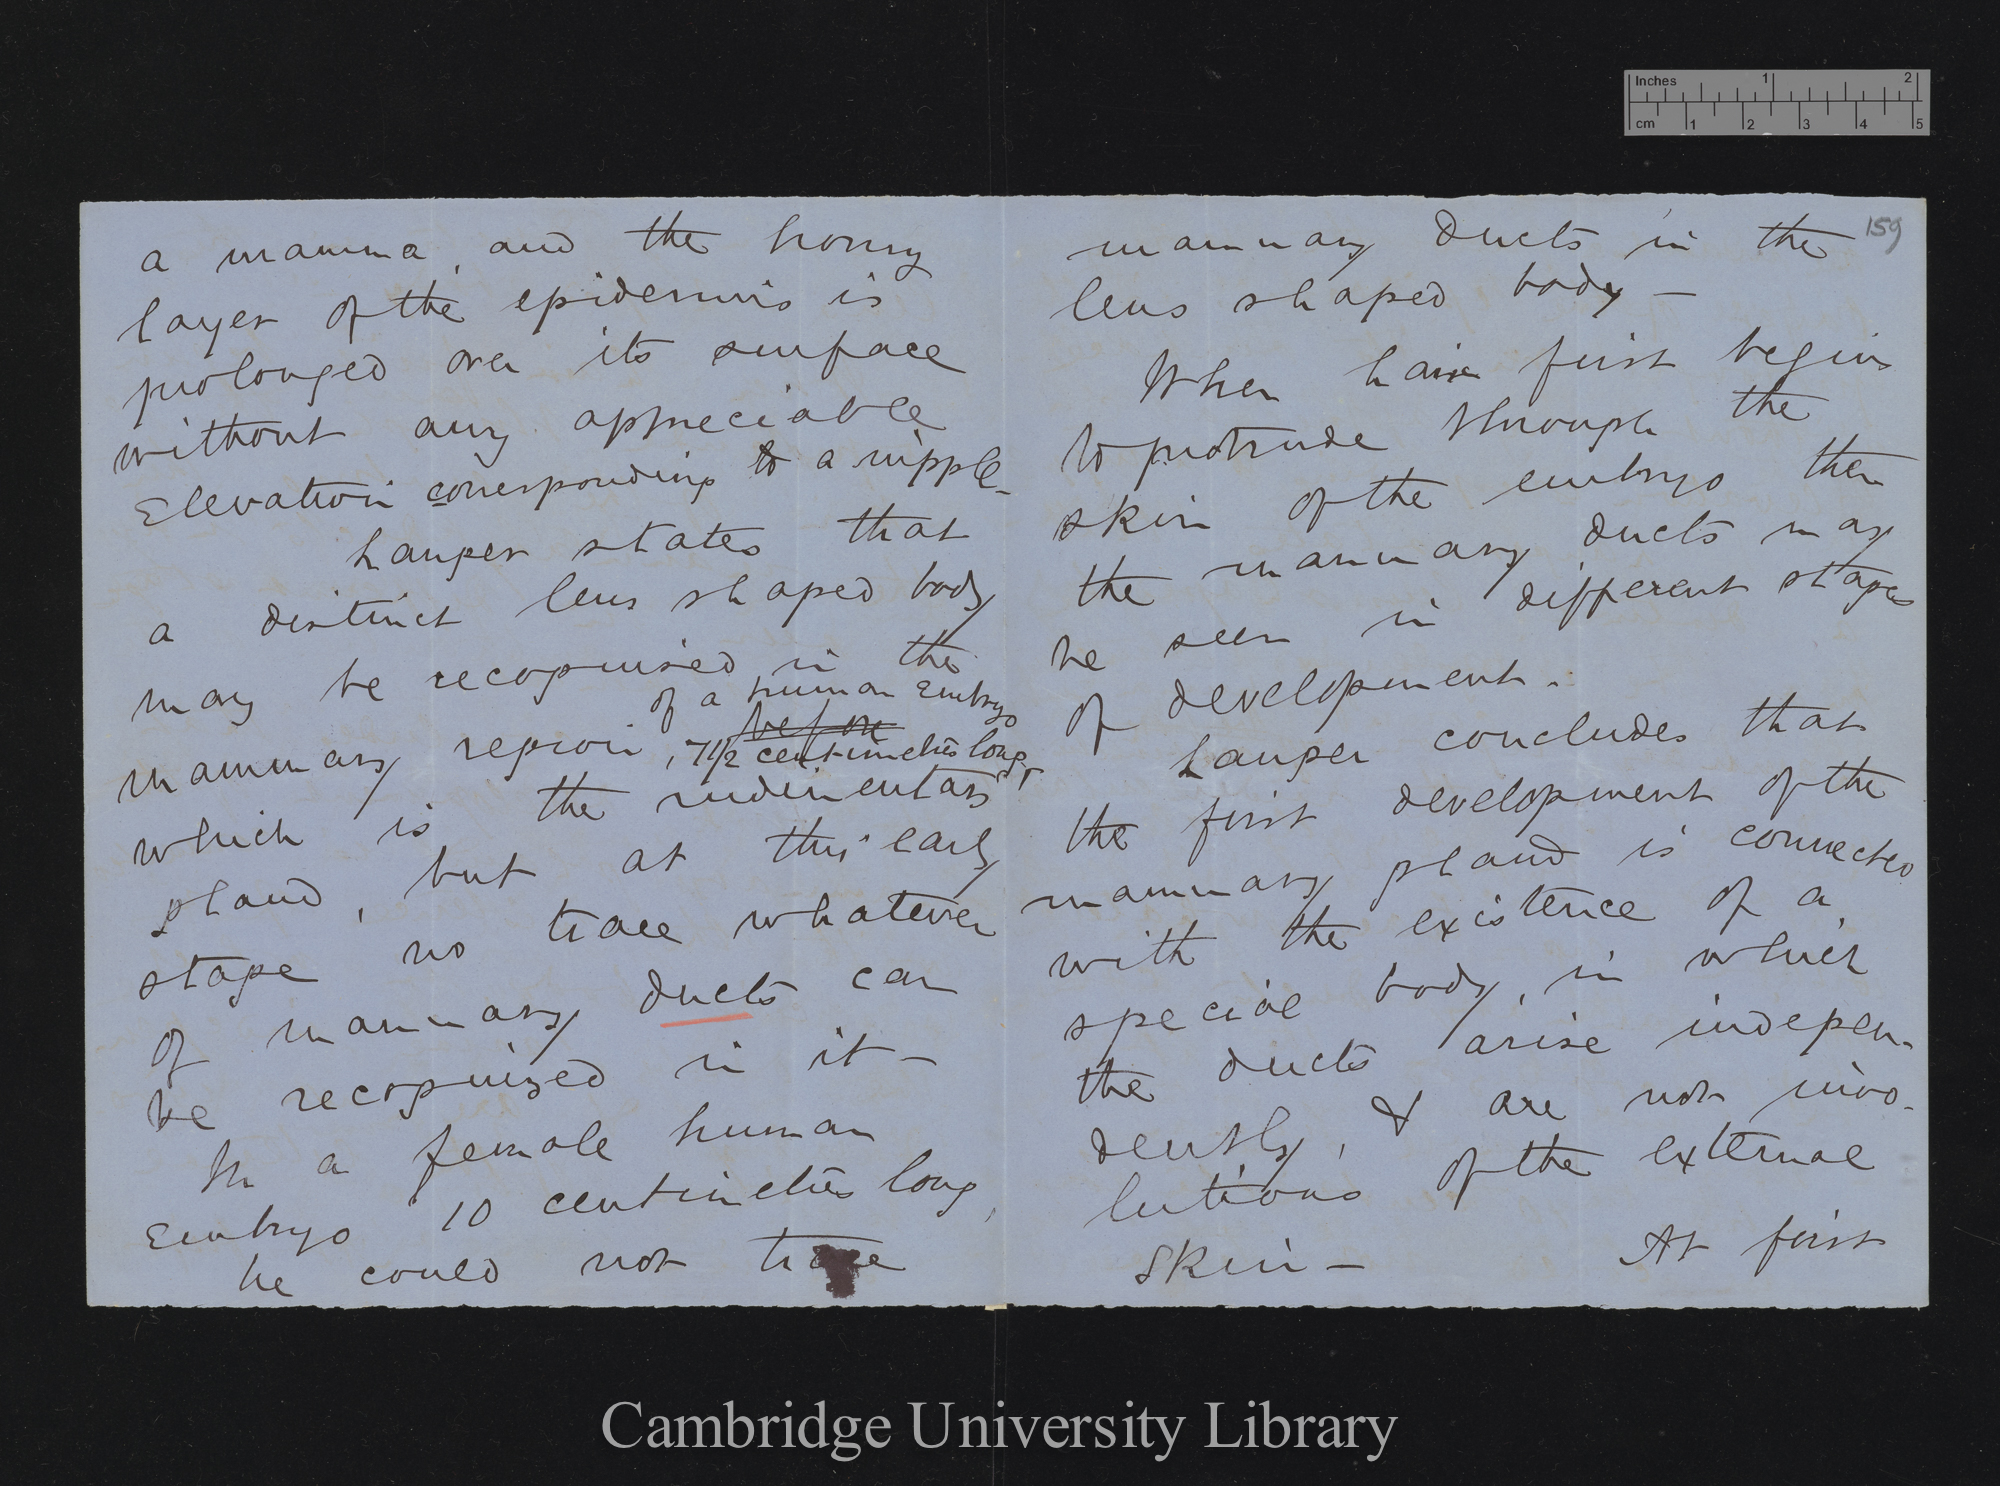 a mamma, and the horny
layer of the epidermis is
prolonged over its surface
without any appreciable
Elevation corresponding to a nipple-
Langer states that
a distinct lens shaped body
may be recognised in the
of a human Embryo
before
mammary region, 7 1/2 centimetres long,
which is the rudimentary
gland, but at this early
stage no trace whatever
of mammary ducts can
be recognized in it—
In a female human
Embryo 10 centimetres long,
he could not trace
159
mammary ducts in the
lens shaped body—
When hair first begins
to protrude through the
skin of the embryo then
the mammary ducts may
be seen in different stages
of development.
Langer concludes that
the first development of the
mammary gland is connected
with the existence of a
special body, in which
the ducts arise indepen-
dently, & are not invo-
lutions of the external
Skin— At first
Inches 1 2
cm 1 2 3 4 5
Cambridge University Library